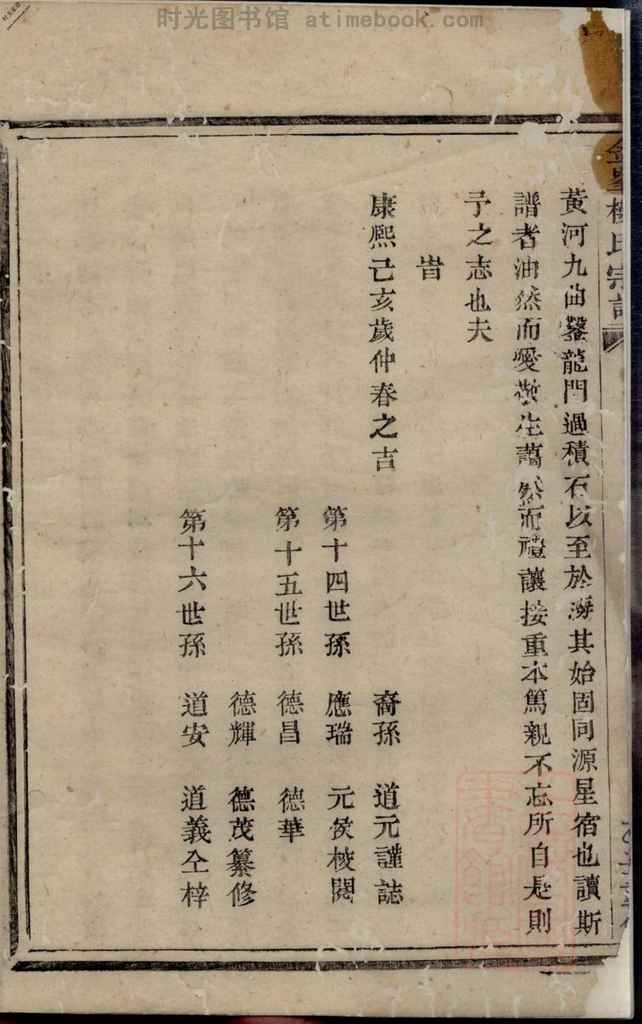 时光图书馆 atimebook.com
氏宗譜
黃河九曲鑿龍門過積石以至於海其始固同源星宿也讀斯
譜者油然而愛敬生藹然而禮讓接重本篤親不忘所自是則
予之志也夫
旹
康熙己亥歲仲春之吉
裔孫 道元謹誌
第十四世孫 應瑞 元侯校閱
第十五世孫 德昌 德華
德輝 德茂纂修
第十六世孫 道安 道義仝梓